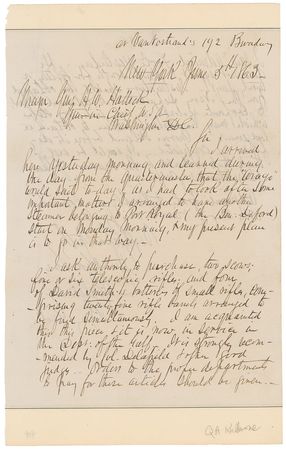 at Van Nostrand's 192 Broadway
New York June 5th 1863
Major Genl H. W. Halleck
General in Chief
Washington D.C.
Sir
I arrived
here yesterday morning and learned during
the day from the Quartermaster, that the
would sail to-day & as I had to look after some
important matters I arranged to have another
steamer belonging to Port Royal (the Ben. Deford)
start on Monday morning, & my present plan
is to go in that way.
I ask authority to purchase two scows;
five or six telescopic rifles; and four
of batteries of small rifles, com-
prising twenty four rifle barrels arranged to
be fired simultaneously. I am acquainted
with this piece & it is now in service in
the Dept. of the Gulf. It is strongly recom-
mended by Col. Delafield & other good
judges. Orders to the proper departments
to pay for these articles should be given.
QA Gillmore